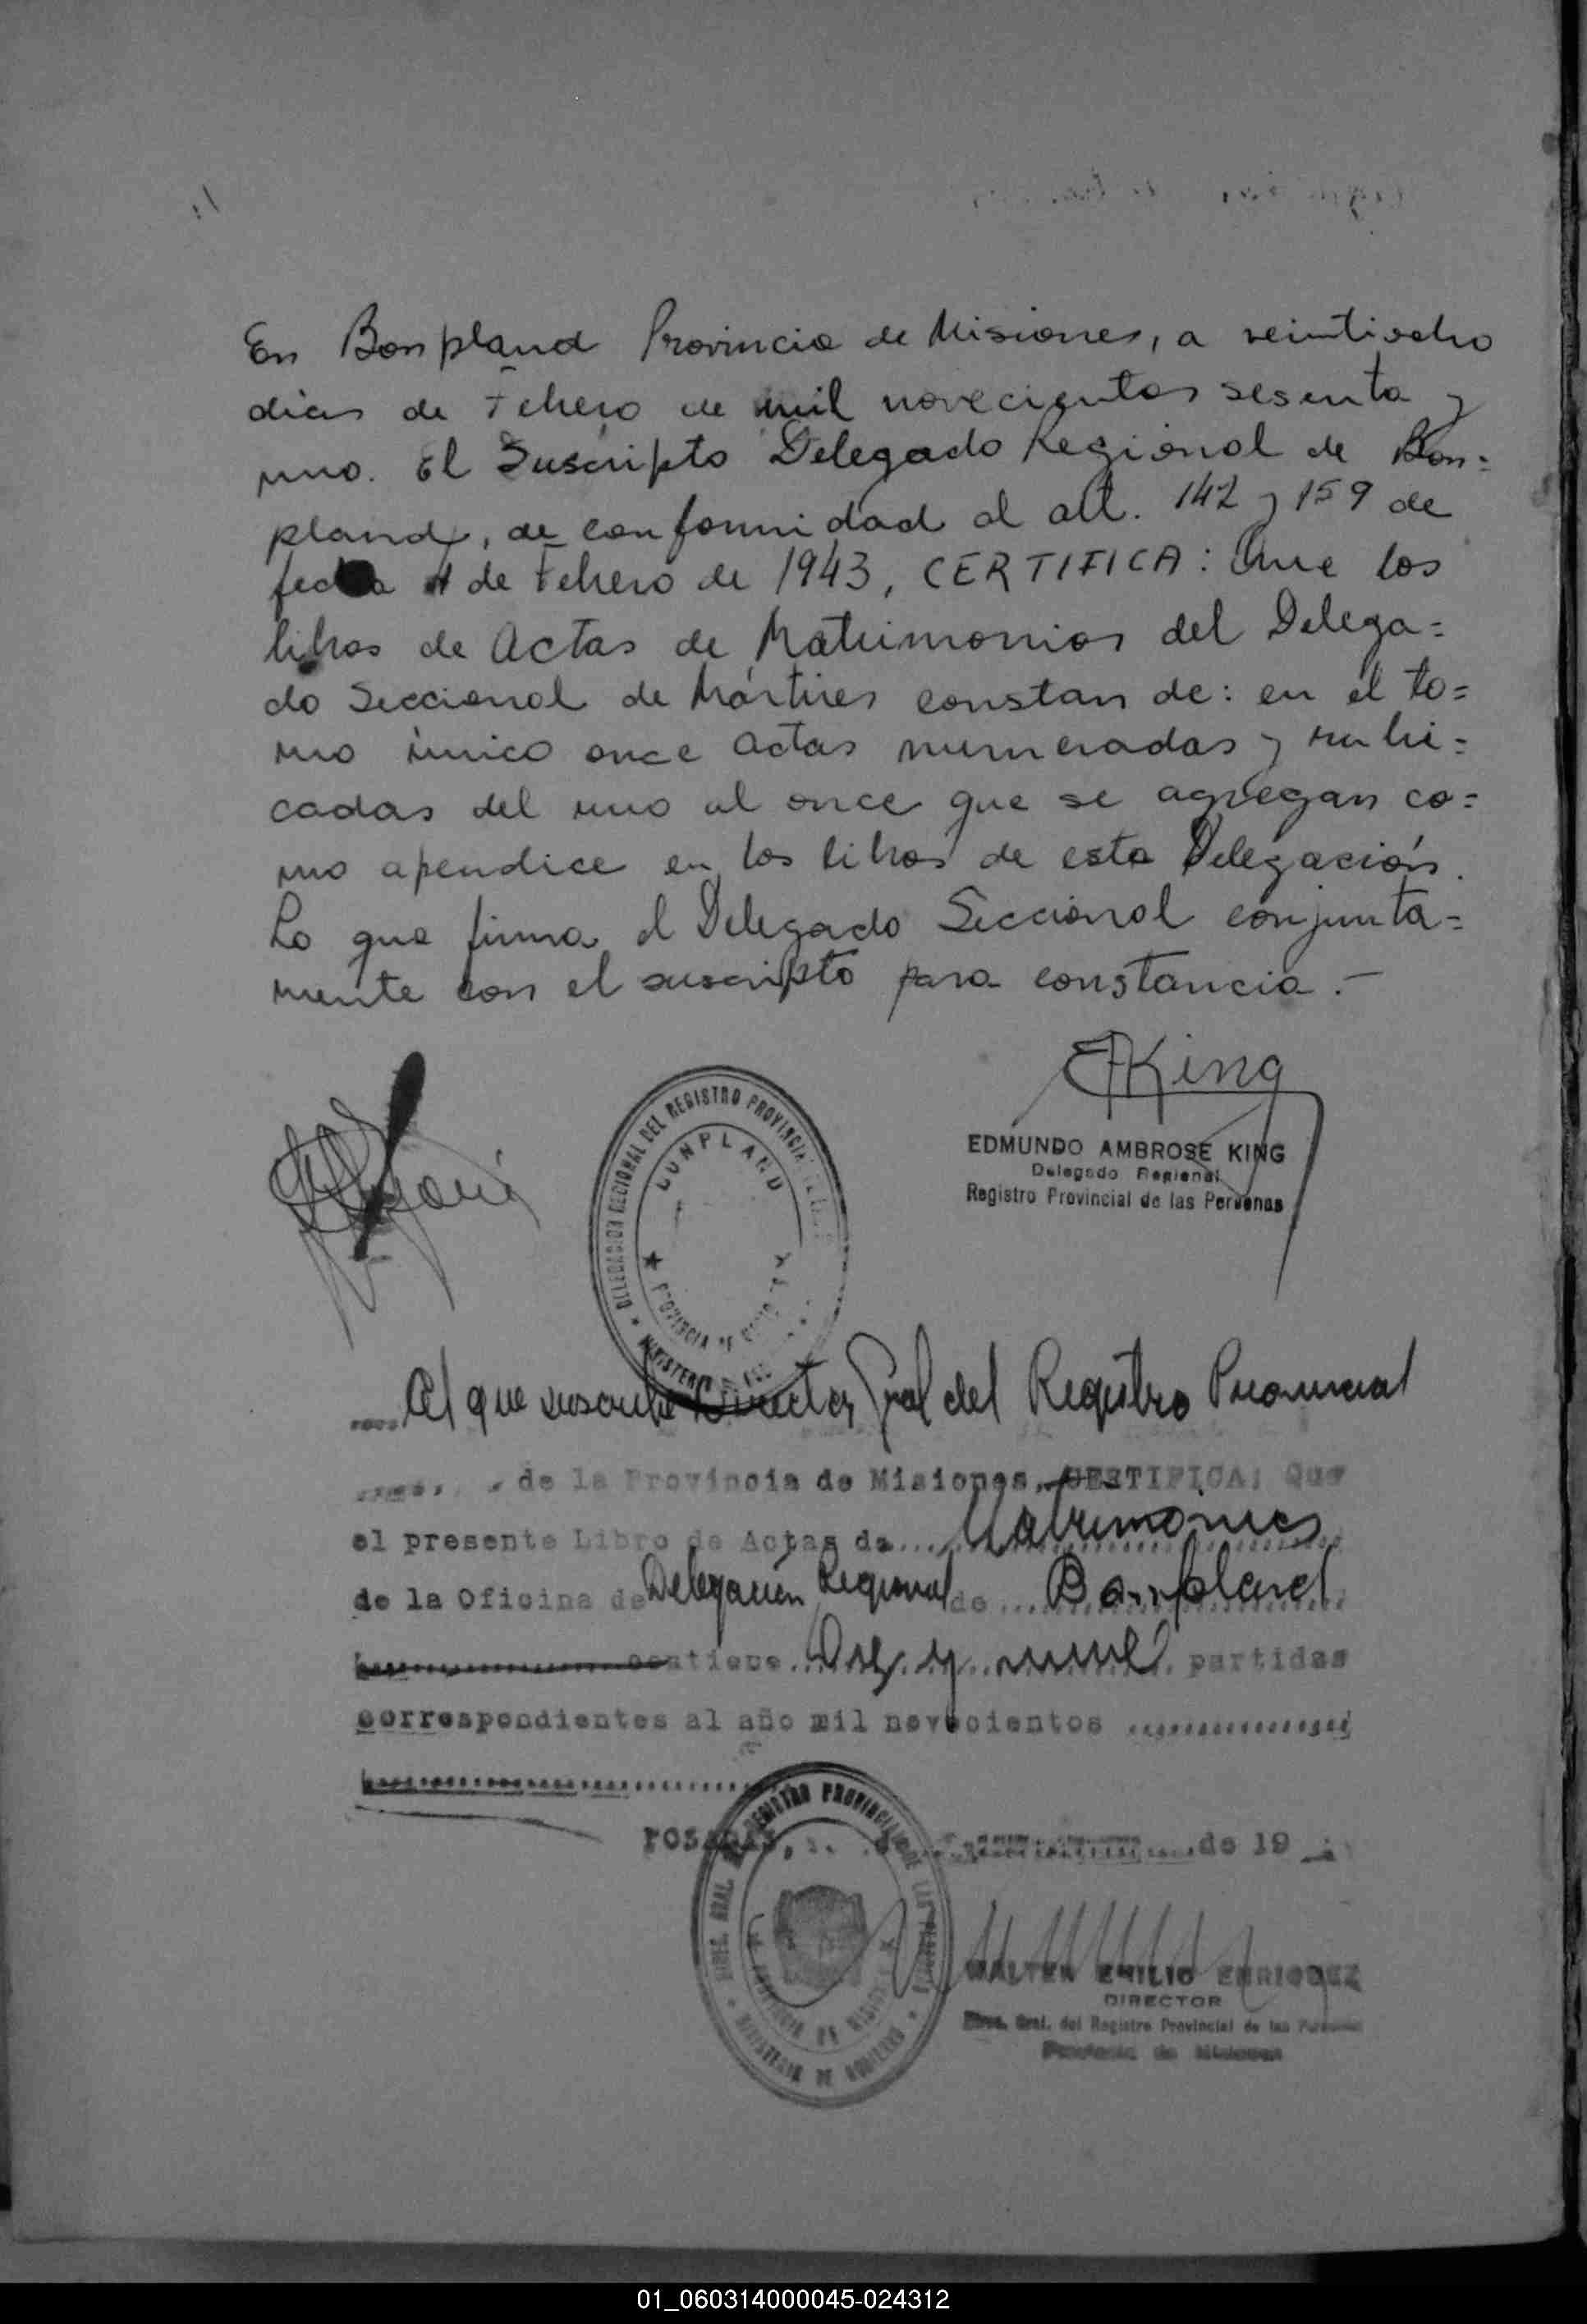 En Bonpland Provincia de Misiones, a veintiocho
dias de Febrero de mil novecientos sesenta y
uno. El Suscripto Delegado Regional de Bon=
pland, de conformidad al art. 142 y 159 de
fecha 4 de Febrero de 1943, CERTIFICA: Que los
libros de Actas de Matrimonios del Delega=
do Seccional de Mártires constan de: en el to=
mo único once actas numeradas y rubri=
cadas del uno al once que se agregan co=
mo apendice en los libros de esta Delegación.
Lo que firma el Delegado Seccional conjunta=
mente con el suscripto para constancia.-
EKing
DELEGACION REGIONAL DEL REGISTRO PROVINCIAL
BONPLAND
PROVINCIA DE
MINISTERIO DE
EDMUNDO AMBROSE KING
Delegado Regional
Registro Provincial de las Personas
El que suscribe Director Gral del Registro Provincial
de la Provincia de Misiones, CERTIFICA: Que
el presente Libro de Actas de Matrimonios
de la Oficina de Delegación Regional de Bonpland
contiene Diez y nueve partidas
correspondientes al año mil novecientos
POSADAS, de 19
DIRC. GRAL. DEL REGISTRO PROVINCIAL DE LAS PERSONAS
PROVINCIA DE MISIONES
MINISTERIO DE GOBIERNO
WALTER EMILIO ENRIQUEZ
DIRECTOR
Direc. Gral. del Registro Provincial de las Personas
Provincia de Misiones
01_060314000045-024312